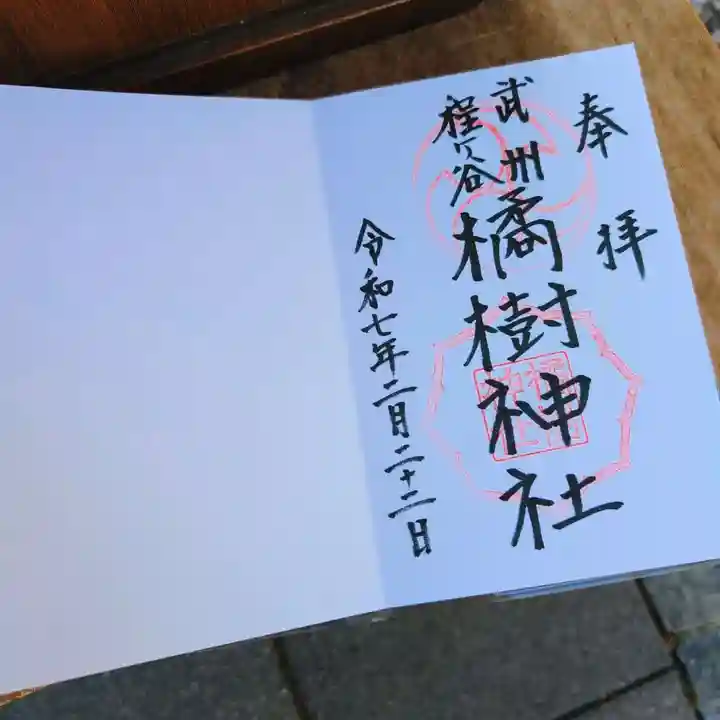 奉拝
武州
程ケ谷
橘樹神社
令和七年二月二十二日